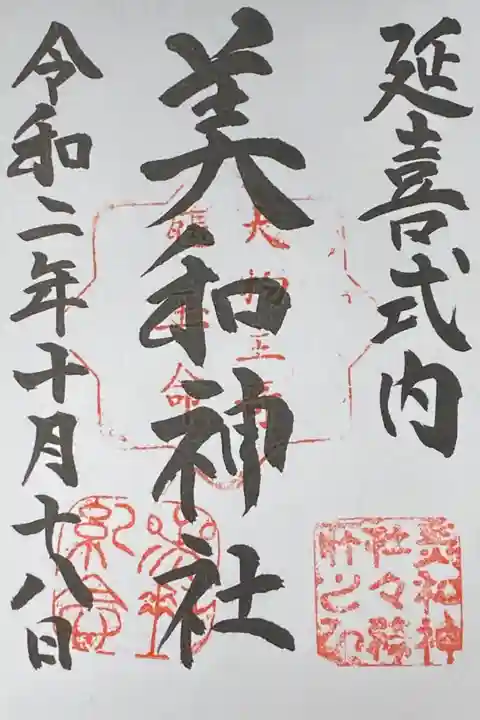 延喜式内
美和神社
令和二年十月十八日
美和神
社々務
所之印